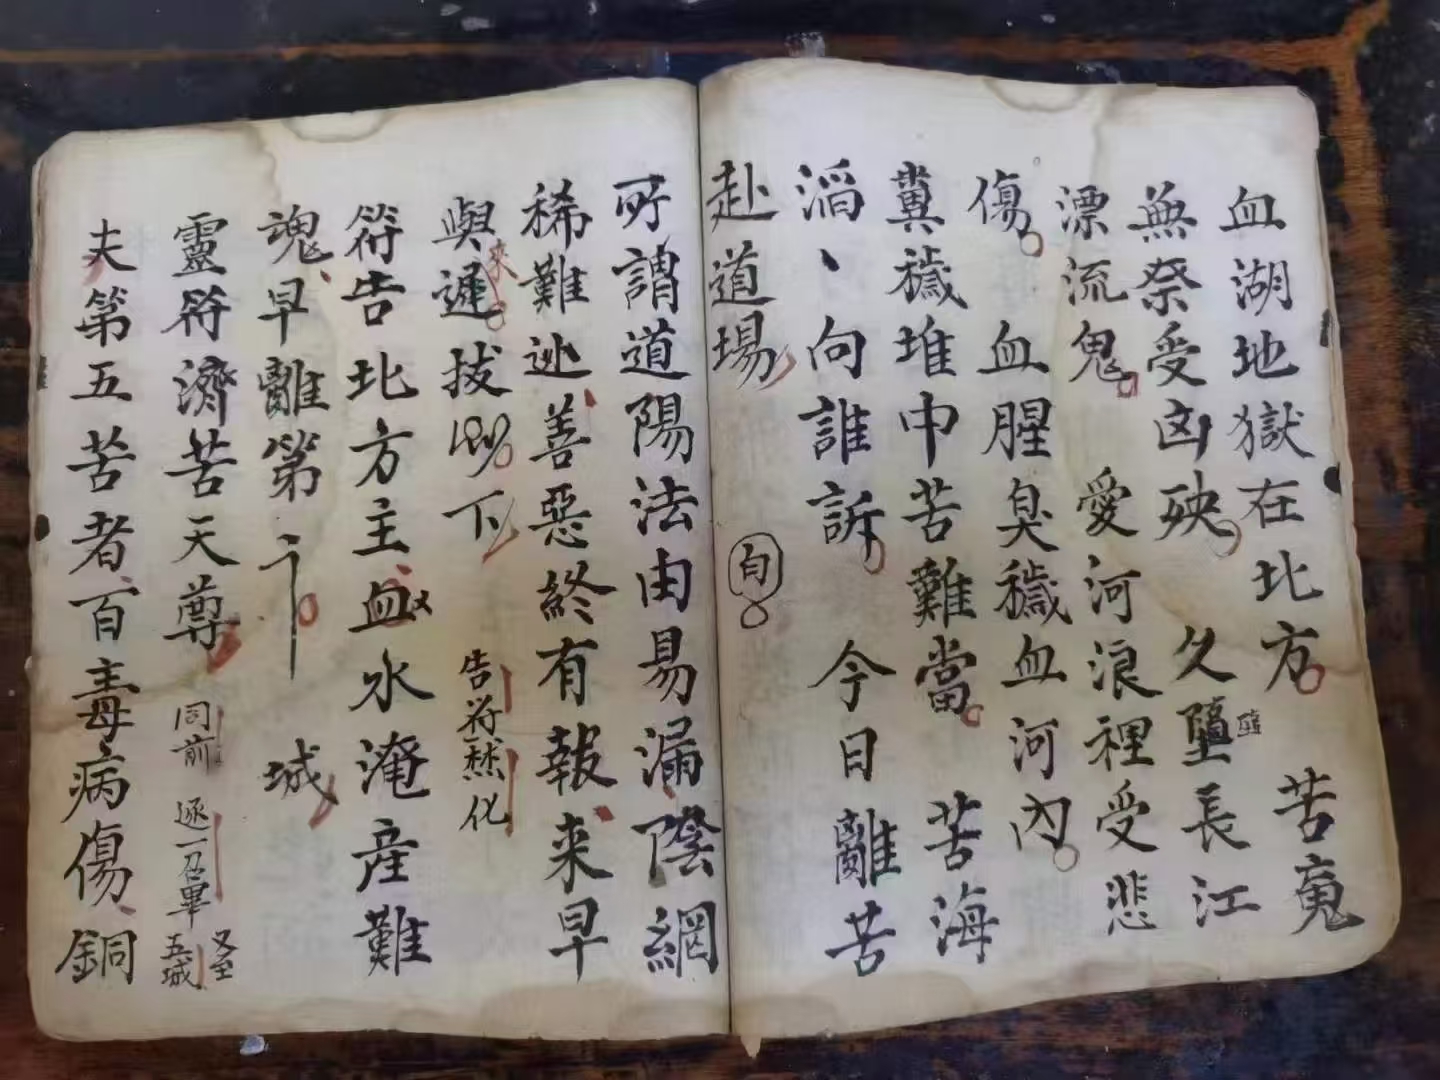 血湖地獄在北方 苦魂
無祭受凶殃 久墮長江
漂流鬼 愛河浪裡受悲
傷 血腥臭穢血河內
糞穢堆中苦難當 苦海
滔、向誰訴 今日離苦
赴道場
所謂道陽法由易漏陰網
稀難逃善惡終有報来早
與遲 拔 下 告符焚化
来
符告北方主血水淹産難
魂早離第 城
靈符濟苦天尊 同前 逐一召畢 又至五城
夫第五苦者百毒病傷銅